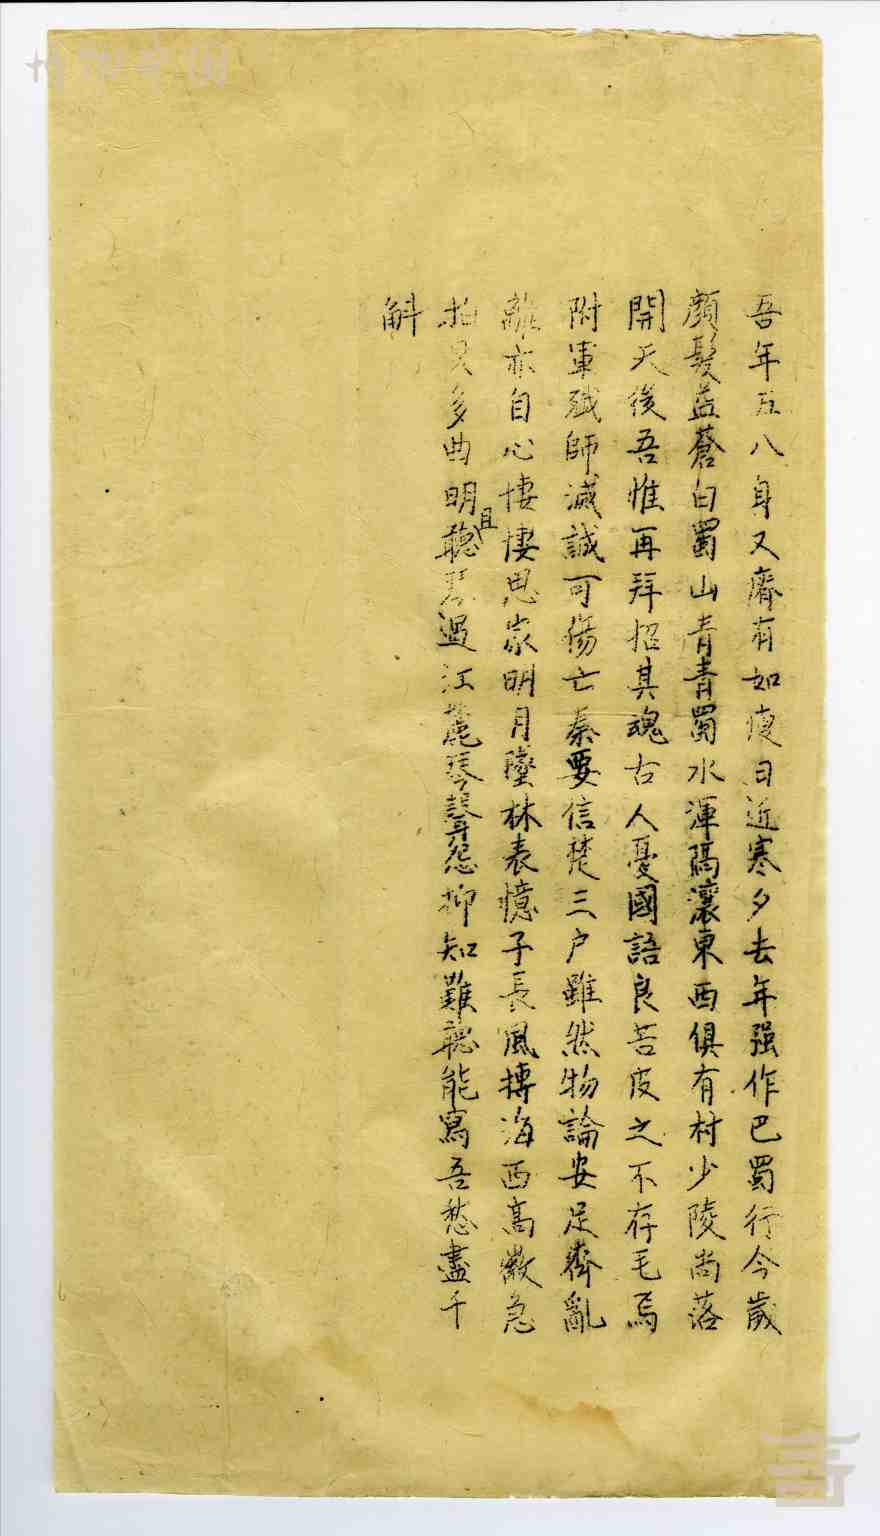 吾年五八身又癠有如瘦日近寒夕去年强作巴蜀行今歲
顏髮益蒼白蜀山青青蜀水渾隔瀼東西俱有村少陵尚落
開天後吾惟再拜招其魂古人憂國語良苦皮之不存毛焉
附軍殲師滅誠可傷亡秦要信楚三户雖然物論安足齊亂
離亦自心悽悽思家明月墮林表憶子長風摶海西高徽急
拍只多曲明聽且琴過江麓琴聲怨抑知難聽能寫吾愁盡千
斛